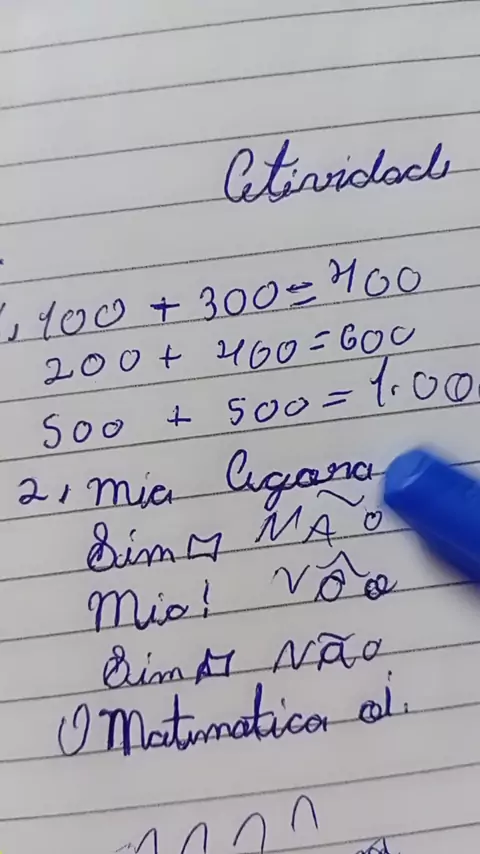 Atividade
1, 100 + 300 = 400
200 + 400 = 600
500 + 500 = 1.00
2, Mia Agora
Sim NÃO
Mio! VÔO
Sim NÃO
Matematica